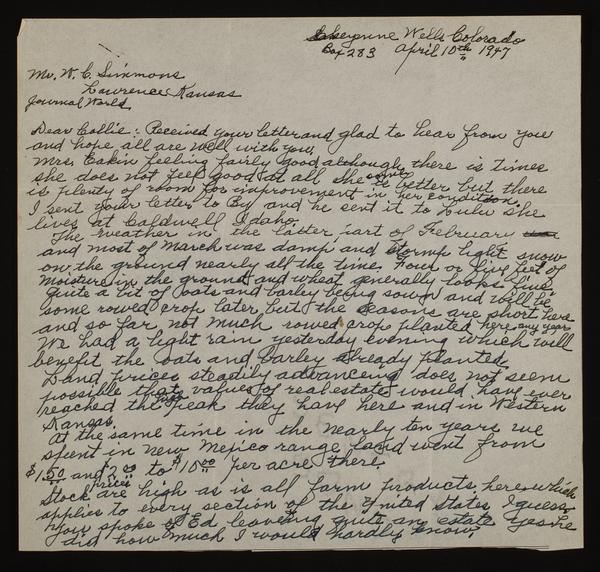 Cheyenne Wells Colorado
Box 283 April 10th 1947
Mr. W. C. Simmons
Lawrence Kansas
Journal World
Dear Collie: Received your letter and glad to hear from you
and hope all are well with you.
Mrs. Eakin feeling fairly good although there is times
she does not feel good at all she some better but there
is plenty of room for improvement in her condition.
I sent your letter to By and he sent it to Lulu she
lives at Caldwell Idaho.
The weather in the latter part of February
and most of March was damp and stormy light snow
on the ground nearly all the time. Four or five feet of
moisture in the ground and wheat generally looks fine.
quite a bit of oats and barley being sown and will be
some rowed crop later but the seasons are short here
and so far not much rowed crop planted here any year
We had a light rain yesterday evening which will
benefit the oats and barley already planted.
Land prices steadily advancing does not seem
possible that values of real estate would have ever
reached the high peak they have here and in Western
Kansas.
At the same time in the nearly ten years we
spent in New Mexico range land went from
$1.50 and $2.00 to $10.00 per acre there.
Stock prices are high as is all farm products here which
applies to every section of the United States I guess.
You spoke of Ed leaving quite an estate yes he
did how much I would hardly know.